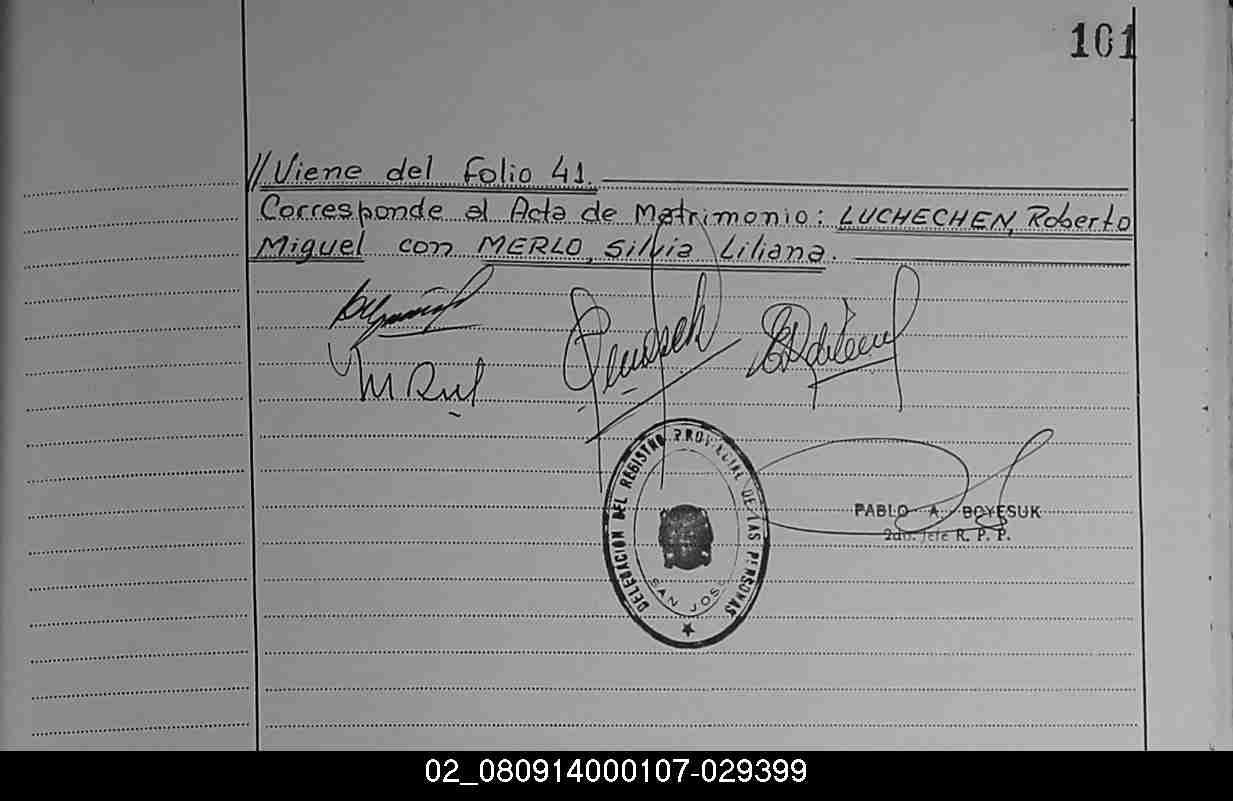 101
// Viene del Folio 41.
Corresponde al Acta de Matrimonio: LUCHECHEN, Roberto
Miguel con MERLO, Silvia Liliana.
DELEGACION DEL REGISTRO PROVINCIAL DE LAS PERSONAS
SAN JOSE
PABLO A. BOYESUK
2do. Jefe R. P. P.
02_080914000107-029399